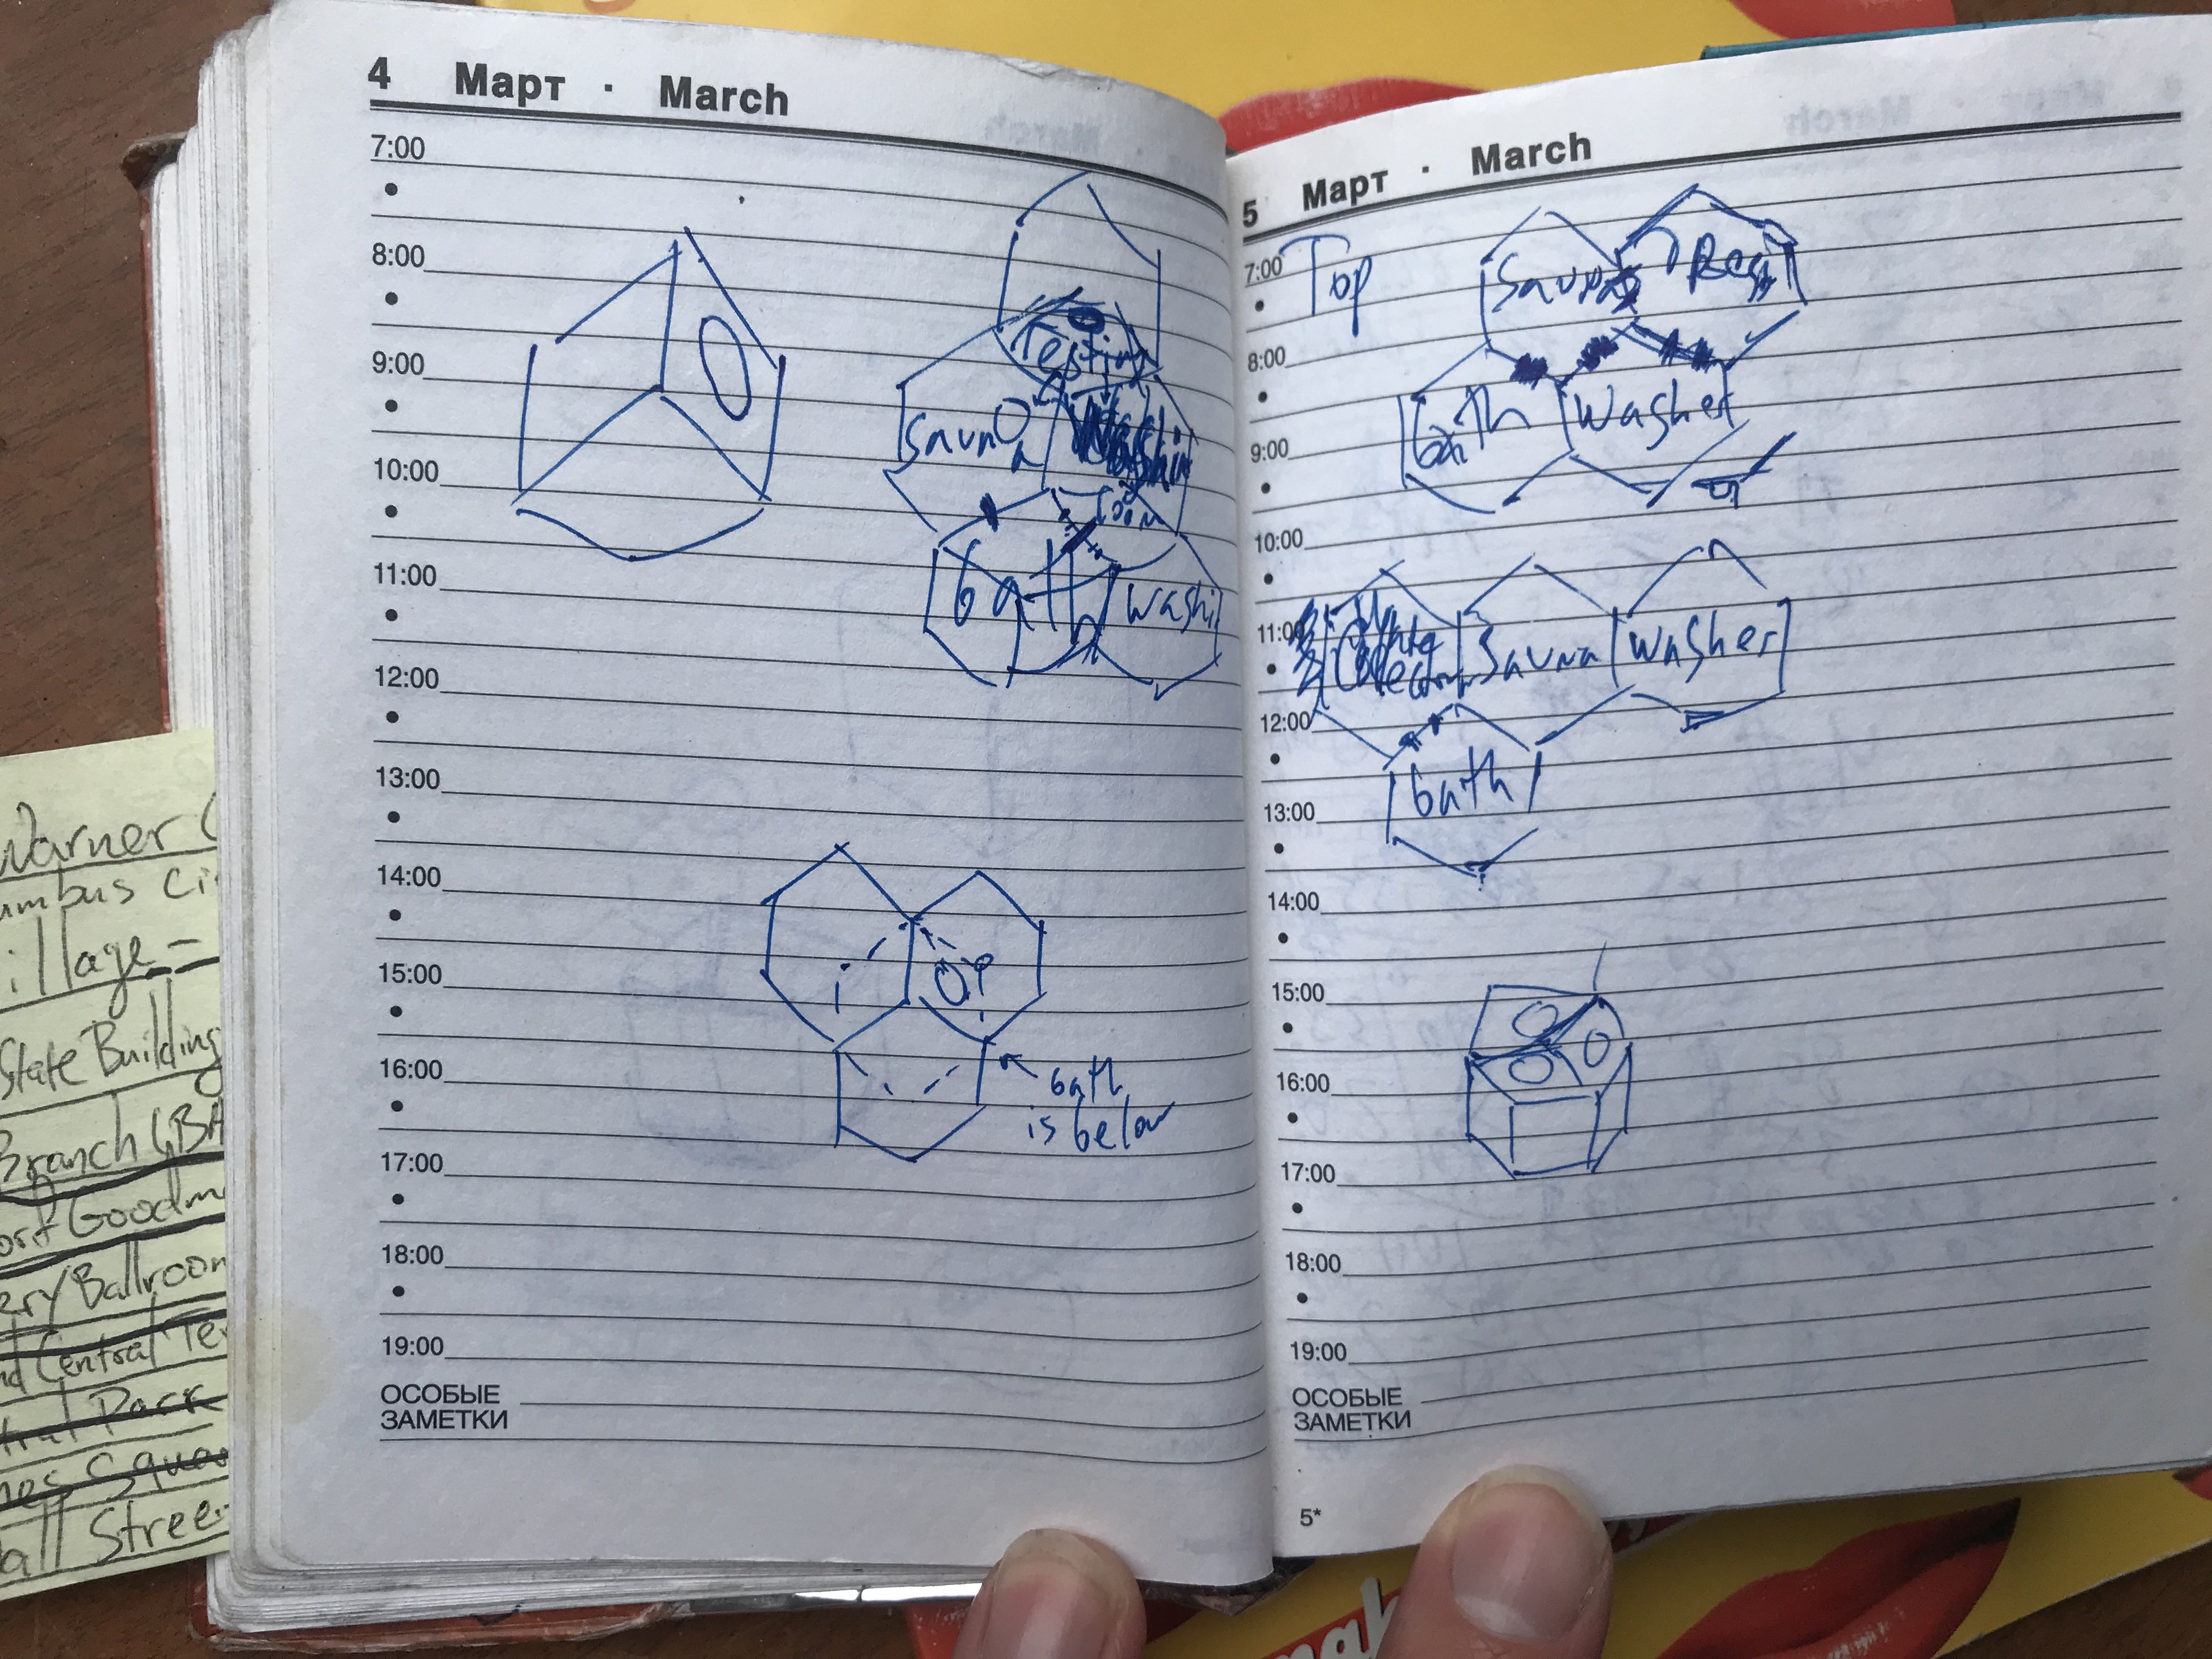 4 Март · March
7:00
8:00
9:00
10:00
11:00
12:00
13:00
14:00
15:00
16:00
17:00
18:00
19:00
ОСОБЫЕ
ЗАМЕТКИ
Testing
Sauna
room
bath
washi
bath
is below
5 Март · March
7:00
8:00
9:00
10:00
11:00
12:00
13:00
14:00
15:00
16:00
17:00
18:00
19:00
ОСОБЫЕ
ЗАМЕТКИ
5*
Top
Sauna
bath
washer
Sauna
washer
bath
Warner C
mbus Ci
illage
State Building
Branch
Goodm
Ballroom
Central Te
Park
Squa
all Stree